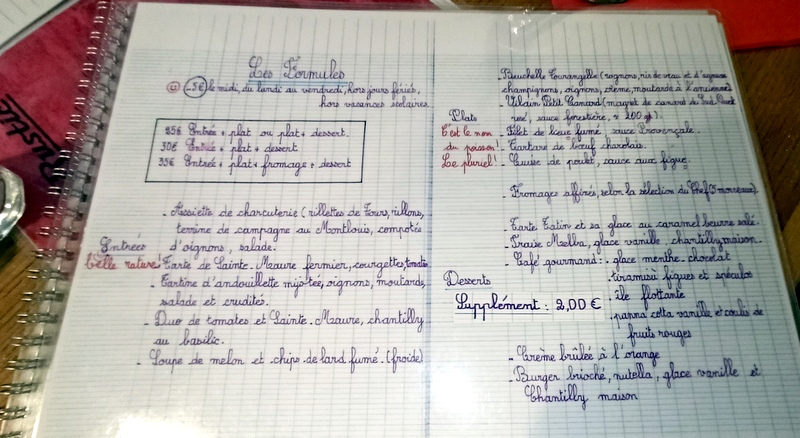 Les Formules
-5€ le midi, du lundi au vendredi, hors jours fériés,
hors vacances scolaires.
25€ Entrée + plat ou plat + dessert.
30€ Entrée + plat + dessert
35€ Entrée + plat + fromage + dessert
Entrées
- Assiette de charcuterie (rillettes de Tours, rillons,
terrine de campagne au Montlouis, compotée
d'oignons, salade.
Belle nature! Tarte de Sainte-Maure fermier, courgettes, tomate
- Tartine d'andouillette mijotée, oignons, moutarde,
salade et crudités.
- Duo de tomates et Sainte-Maure, chantilly
au basilic.
- Soupe de melon et chips de lard fumé. (froide)
Plats
- Beuchelle Tourangelle (rognons, ris de veau et d'agneau
champignons, oignons, crème, moutarde à l'ancienne)
- Vilain Petit Canard (magret de canard du Sud Ouest
rosé, sauce forestière, ± 200 g)
C'est le nom
du poisson!
Le pluriel!
- Filet de lieu fumé sauce Provençale.
- Tartare de bœuf charolais.
- Cuisse de poulet, sauce aux figue.
- Fromages affinés, selon la sélection du Chef (3 morceaux).
Desserts
- Tarte Tatin et sa glace au caramel beurre salé.
- Fraise Melba, glace vanille, chantilly maison.
- Café gourmand: glace menthe-chocolat
. tiramisù figues et spéculos
. île flottante
. panna cotta vanille et coulis de
fruits rouges
Supplément : 2,00 €
- Crème brûlée à l'orange
- Burger brioché, nutella, glace vanille et
Chantilly maison
ustic